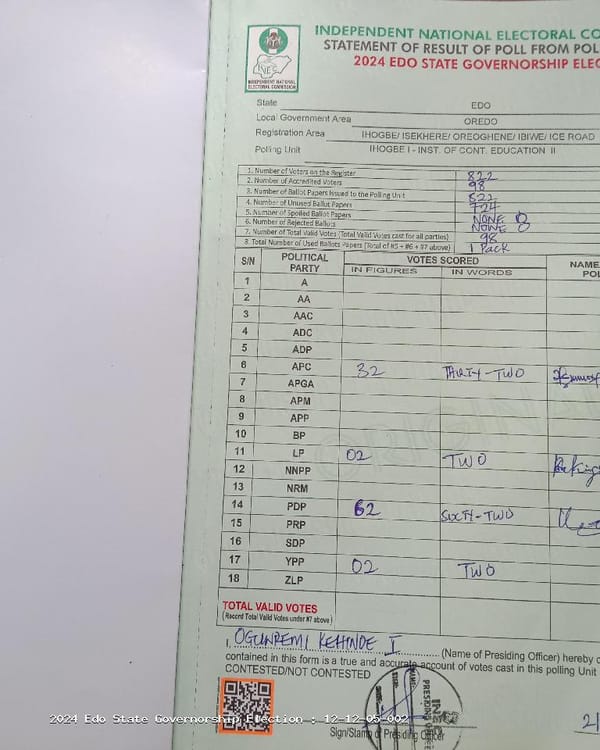 INDEPENDENT NATIONAL ELECTORAL CO
STATEMENT OF RESULT OF POLL FROM POL
2024 EDO STATE GOVERNORSHIP ELEC
INEC
INDEPENDENT NATIONAL
ELECTORAL COMMISSION
State EDO
Local Government Area OREDO
Registration Area IHOGBE/ ISEKHERE/ OREOGHENE/ IBIWE/ ICE ROAD
Polling Unit IHOGBE I - INST. OF CONT. EDUCATION II
1. Number of Voters on the Register 822
2. Number of Accredited Voters 98
3. Number of Ballot Papers Issued to the Polling Unit 822
4. Number of Unused Ballot Papers 724
5. Number of Spoiled Ballot Papers NONE
6. Number of Rejected Ballots NONE
7. Number of Total Valid Votes (Total Valid Votes cast for all parties) 98
8. Total Number of Used Ballots Papers (Total of #5 + #6 + #7 above) 1 Pack
S/N POLITICAL PARTY VOTES SCORED NAME
IN FIGURES IN WORDS POL
1 A
2 AA
3 AAC
4 ADC
5 ADP
6 APC 32 THIRTY-TWO
7 APGA
8 APM
9 APP
10 BP
11 LP 02 TWO
12 NNPP
13 NRM
14 PDP 62 SIXTY-TWO
15 PRP
16 SDP
17 YPP 02 TWO
18 ZLP
TOTAL VALID VOTES
(Record Total Valid Votes under #7 above)
I, OGUNREMI KEHINDE I (Name of Presiding Officer) hereby c
contained in this form is a true and accurate account of votes cast in this polling Unit
CONTESTED/NOT CONTESTED
2024 Edo State Governorship Election : 12-12-05-002
Sign/Stamp of Presiding Officer
21